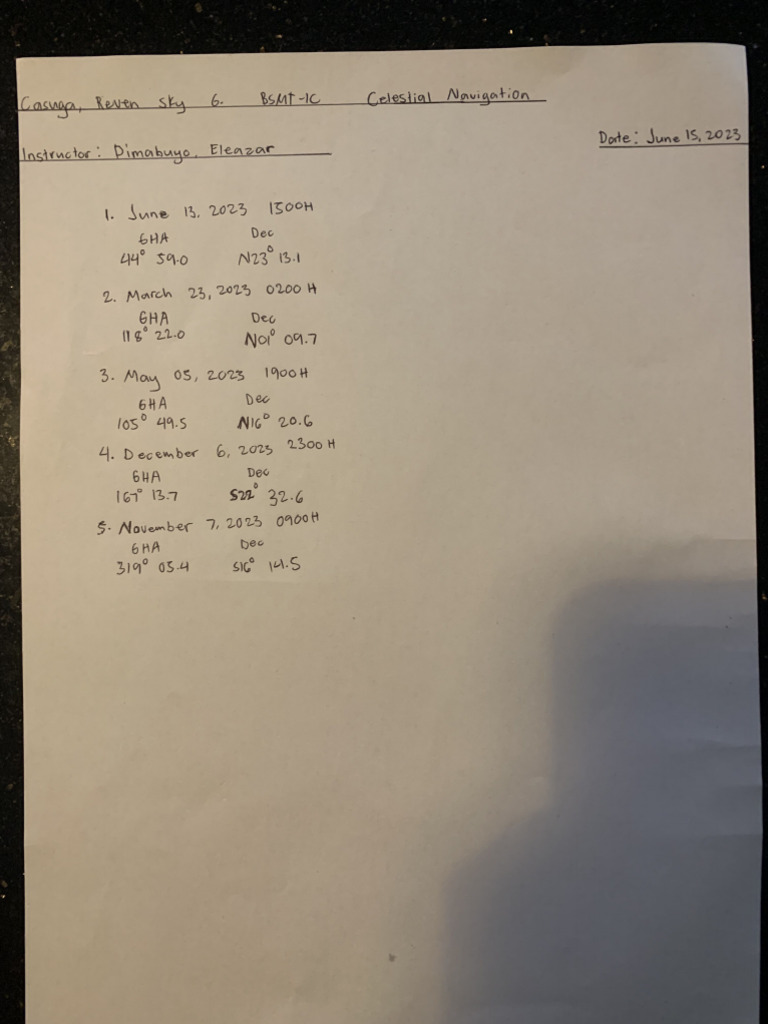 Casuga, Reven Sky G. BSMT-1C Celestial Navigation
Date: June 15, 2023
Instructor: Dimabuyo, Eleazar
1. June 13, 2023 1500H
GHA Dec
44° 59.0 N23° 13.1
2. March 23, 2023 0200 H
GHA Dec
118° 22.0 N01° 09.7
3. May 05, 2023 1900H
GHA Dec
105° 49.5 N16° 20.6
4. December 6, 2023 2300 H
GHA Dec
167° 13.7 S22° 32.6
5. November 7, 2023 0900H
GHA Dec
319° 05.4 S16° 14.5